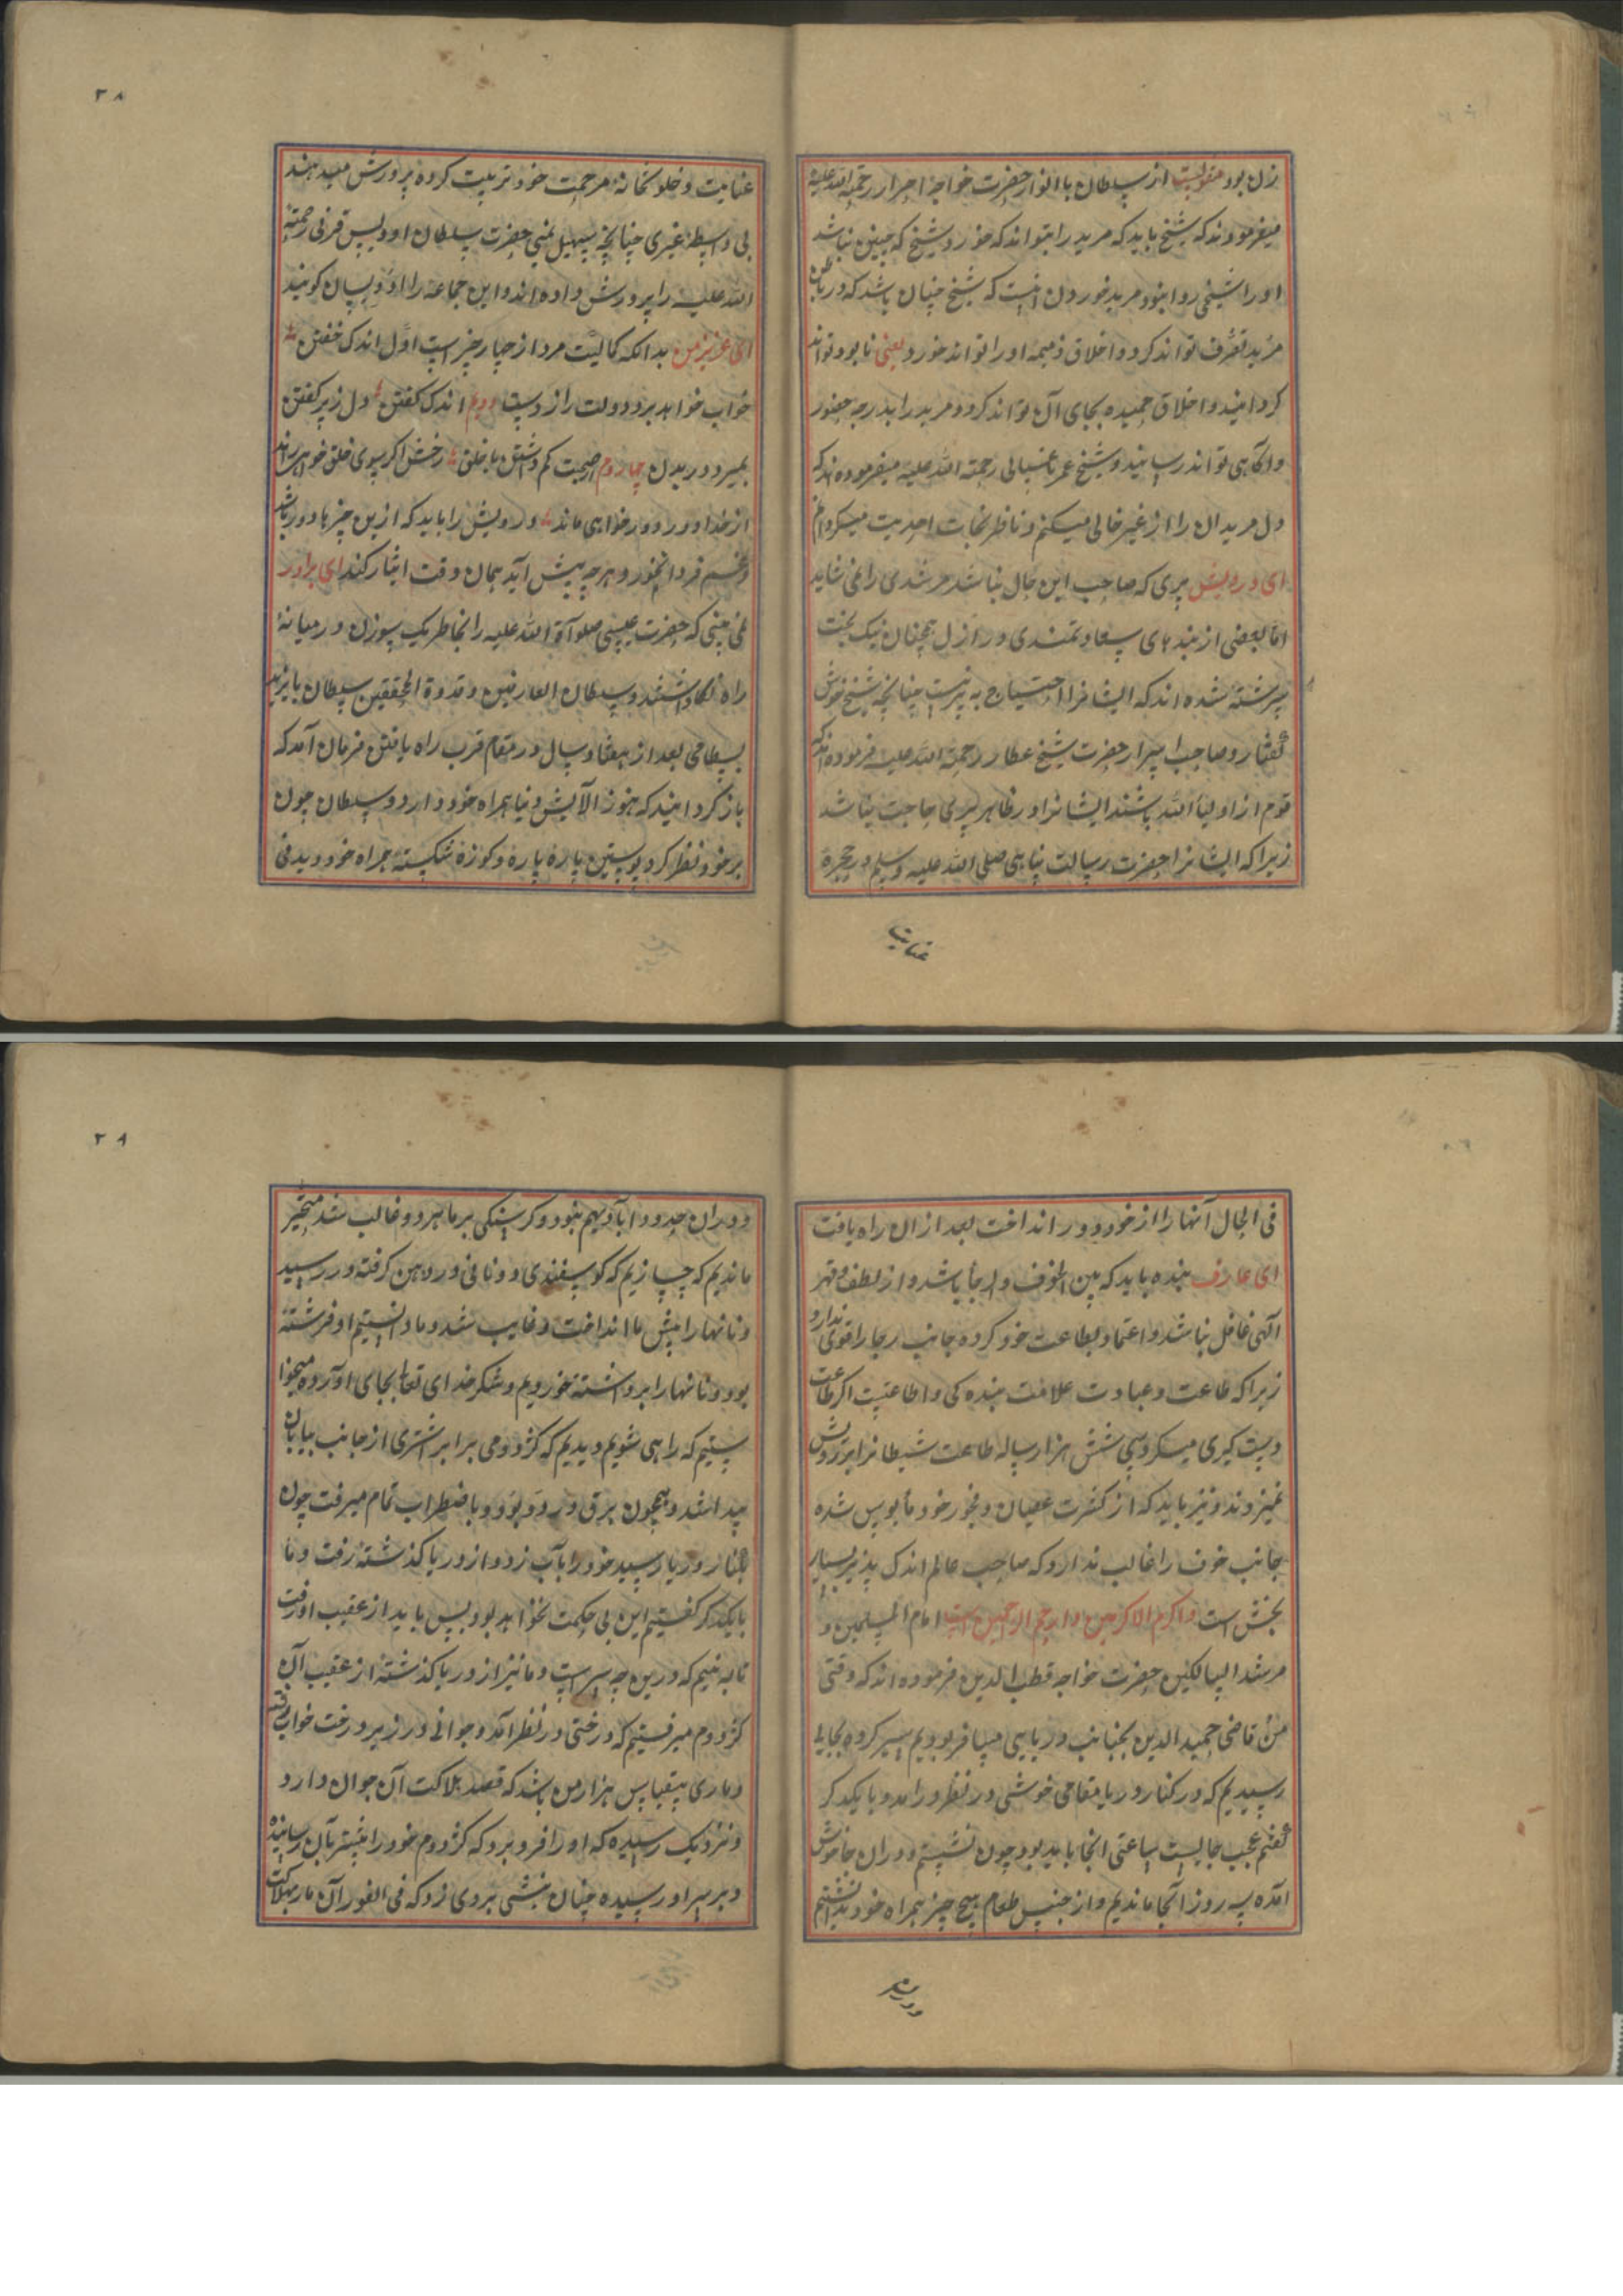 زن بود منقولست از سلطان با انوار حضرت خواجه احرار رحمة الله علیه
میفرمودند که شیخ باید که مرید را بتواند که خورد شیخ که چنین نباشد
او را شیخی روا نبود مرید خوردن انیست که شیخ چنان باشد که در باطن
مرید تصرف تواند کرد و اخلاق ذمیمه او را تواند خورد یعنی نابود تواند
گردانید و اخلاق حمیده بجای آن تواند کرد و مرید را بدرجه حضور
و اگاهی تواند رسانید و شیخ عمر باغستانی رحمة الله علیه میفرموده اند که
دل مریدان را از غیر خالی میکنم و ناظر نفحات احدیت میگردانم
ای درویش پیری که صاحب این حال نباشد مرشدی را نمی شاید
اما بعضی از بندهای سعادتمندی در ازل همچنان نیک بخت
سرشته شده اند که ایشانرا احتیاج به پیر نیست چنانچه شیخ خوش
گفتار و صاحب اسرار حضرت شیخ عطار رحمة الله علیه فرموده اند که
قوم از اولیاء الله باشند ایشانرا در ظاهر پیری حاجت نباشد
زیرا که ایشانرا حضرت رسالت پناهی صلی الله علیه وسلم در حجره
عنایت
۳۸
عنایت و خلوتخانه مرحمت خود تربیت کرده پرورش میدهند
بی واسطه غیری چنانچه سهیل یمنی حضرت سلطان اویس قرنی رحمة
الله علیه را پرورش داده اند و این جماعه را اویسیان گویند
ای عزیز من بدانکه کمالیت مرد از چهار چیز است اول اندک خفتن
خواب خواهد برد دولت را ز دست دویم اندک گفتن دل ز پر گفتن
بمیرد در بدن چهارم صحبت کم داشتن با خلق رخش اگر سوی خلق خواهی راند
از خدا دور دور خواهی ماند درویش را باید که ازین چیزها دور باشد
و غم فردا نخورد و هرچه پیش آید همان وقت ایثار کند ای برادر
نمی بینی که حضرت عیسی صلواة الله علیه را بخاطر یک سوزن در میانه
راه نگاداشتند و سلطان العارفین و قدوة المحققین سلطان بایزید
بسطامی بعد از هفتاد سال در مقام قرب راه یافتن فرمان آمد که
باز گردانید که هنوز آلایش دنیا همراه خود دارد و سلطان چون
بر خود نظر کرد پوستین پاره پاره و کوزه شکسته همراه خود دید فی
فی الحال آنها را از خود دور انداخت بعد از ان راه یافت
ای عارف بنده باید که بین الخوف والرجا باشد و از لطف و قهر
الهی غافل نباشد و اعتماد بطاعت خود کرده جانب رجا را قوی ندارد
زیرا که طاعت و عبادت علامت بنده کی و اطاعتیست اگر طاعت
دستگیری میکردی شش هزار ساله طاعت شیطانرا بر رویش
نمیزدند و نیز باید که از کثرت عصیان و فجور خود مأیوس شده
جانب خوف را غالب ندارد که صاحب عالم اندک پذیر بسیار
بخش است و اکرم الاکرمین و ارحم الراحمین است امام المسلمین و
مرشد السالکین حضرت خواجه قطب الدین فرموده اند که وقتی
من و قاضی حمید الدین بجانب دریایی مسافر بودیم سیر کرده بجایی
رسیدیم که در کنار دریا مقامی خوشی در نظر در آمد و با یکدیگر
گفتم عجب جاییست ساعتی انجا باید بود چون نشستیم دوران خاموش
آمده سه روز آنجا ماندیم و از جنس طعام هیچ چیز همراه خود نداشتیم
ودران
۳۹
ودران حدود آبادی هم نبود و گرسنگی بر ما هر دو غالب شد متحیر
ماندیم که چسازیم که گوسفندی دو نانی در دهن گرفته در رسید
و نانها را پیش ما انداخت و غایب شد و ما دانستیم او فرشته
بود و نانها را برداشته خوردیم و شکر خدای تعالی بجای آورده میخوا
ستیم که راهی شویم دیدیم که کژدمی برابر اشتری از جانب بیابان
پیدا شد و همچون برق در دو بود و باضطراب تمام میرفت چون
بکنار دریا رسید خود را بآب زد و از دریا گذشته رفت و ما
با یکدیگر گفتیم این بی حکمت نخواهد بود پس باید از عقب او رفت
تا به بینیم که درین چه سر است و ما نیز از دریا گذشته از عقب آن
کژدم میرفتیم که درختی در نظر آمد و جوانی در زیر درخت خواب رفته
و ماری بقیاس هزار من باشد که قصد هلاکت آن جوان دارد
و نزدیک رسیده که او را فرو برد که کژدم خود را بشتر بآن رسانیده
و بر سر او رسیده چنان نیشی بروی زد که فی الفور آن مار بهلاکت